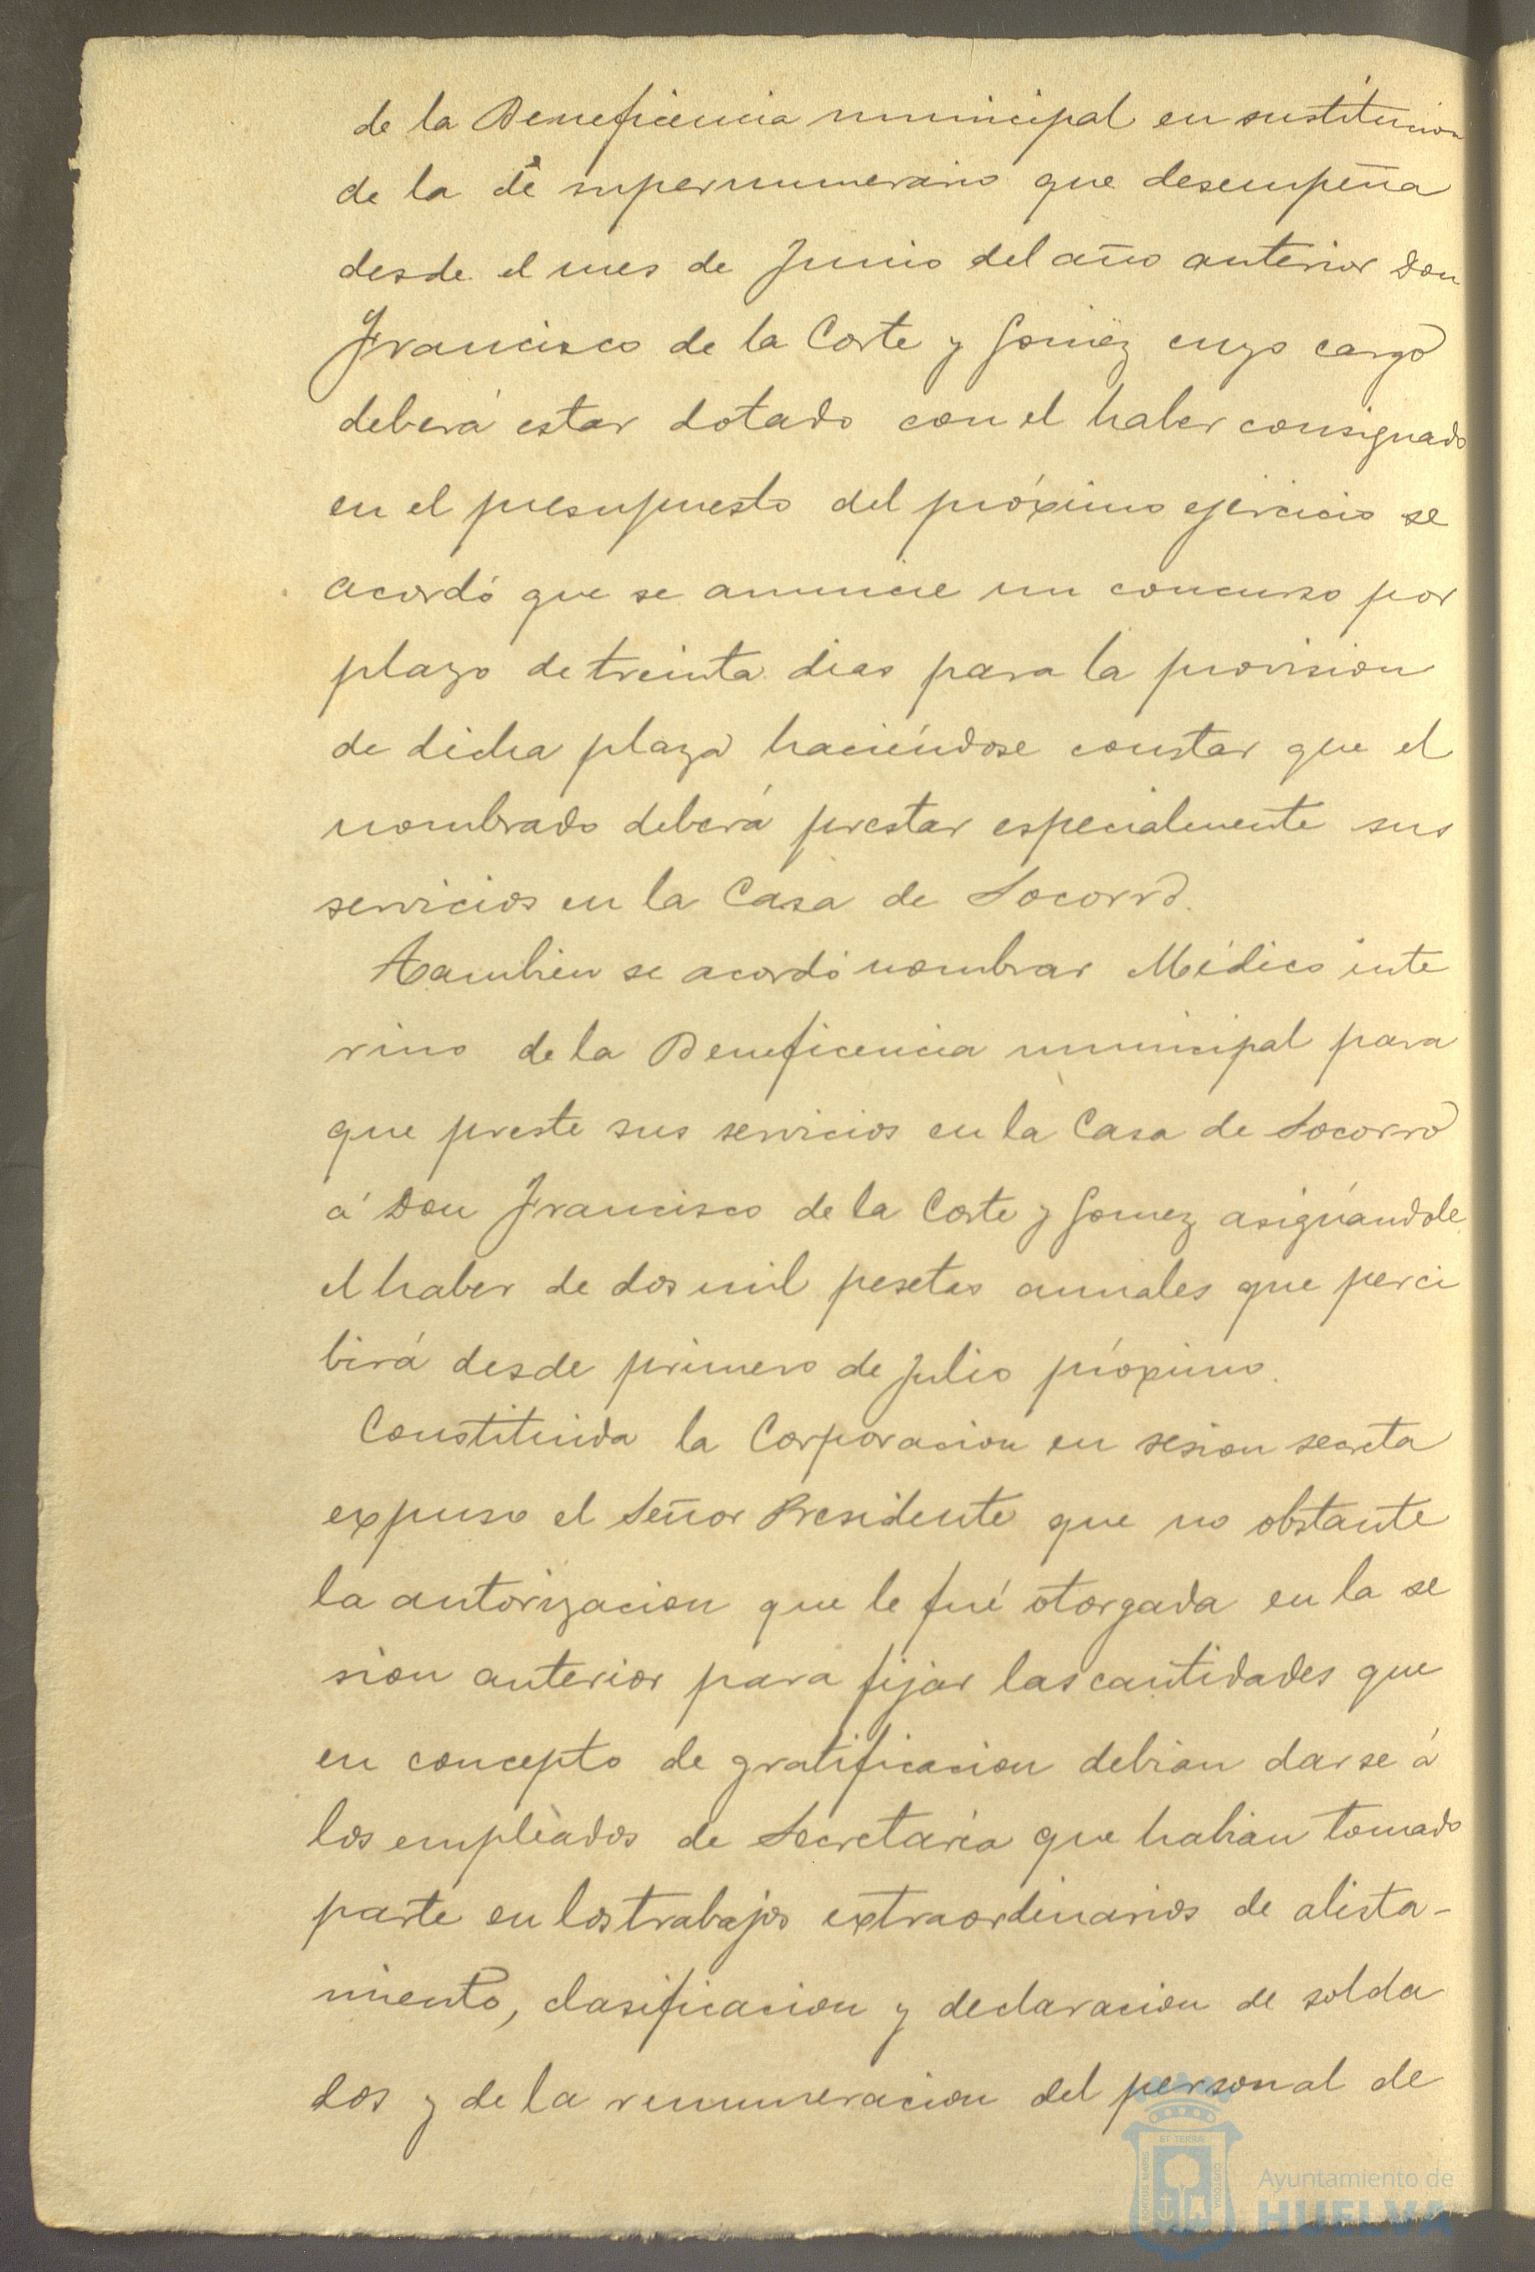 de la Beneficencia municipal en sustitucion
de la de supernumerario que desempeña
desde el mes de Junio del año anterior Don
Francisco de la Corte y Gomez cuyo cargo
deberá estar dotado con el haber consignado
en el presupuesto del próximo ejercicio se
acordó que se anuncie un concurso por
plazo de treinta dias para la provision
de dicha plaza haciéndose constar que el
nombrado deberá prestar especialmente sus
servicios en la Casa de Socorro.
Tambien se acordó nombrar Médico inte
rino de la Beneficencia municipal para
que preste sus servicios en la Casa de Socorro
á Don Francisco de la Corte y Gomez asignándole
el haber de dos mil pesetas anuales que perci
birá desde primero de Julio próximo.
Constituida la Corporacion en sesion secreta
expuso el Señor Presidente que no obstante
la autorizacion que le fué otorgada en la se
sion anterior para fijar las cantidades que
en concepto de gratificacion debian darse á
los empleados de Secretaría que habian tomado
parte en los trabajos extraordinarios de alista-
miento, clasificacion y declaracion de solda
dos y de la remuneracion del personal de
Ayuntamiento de
HUELVA